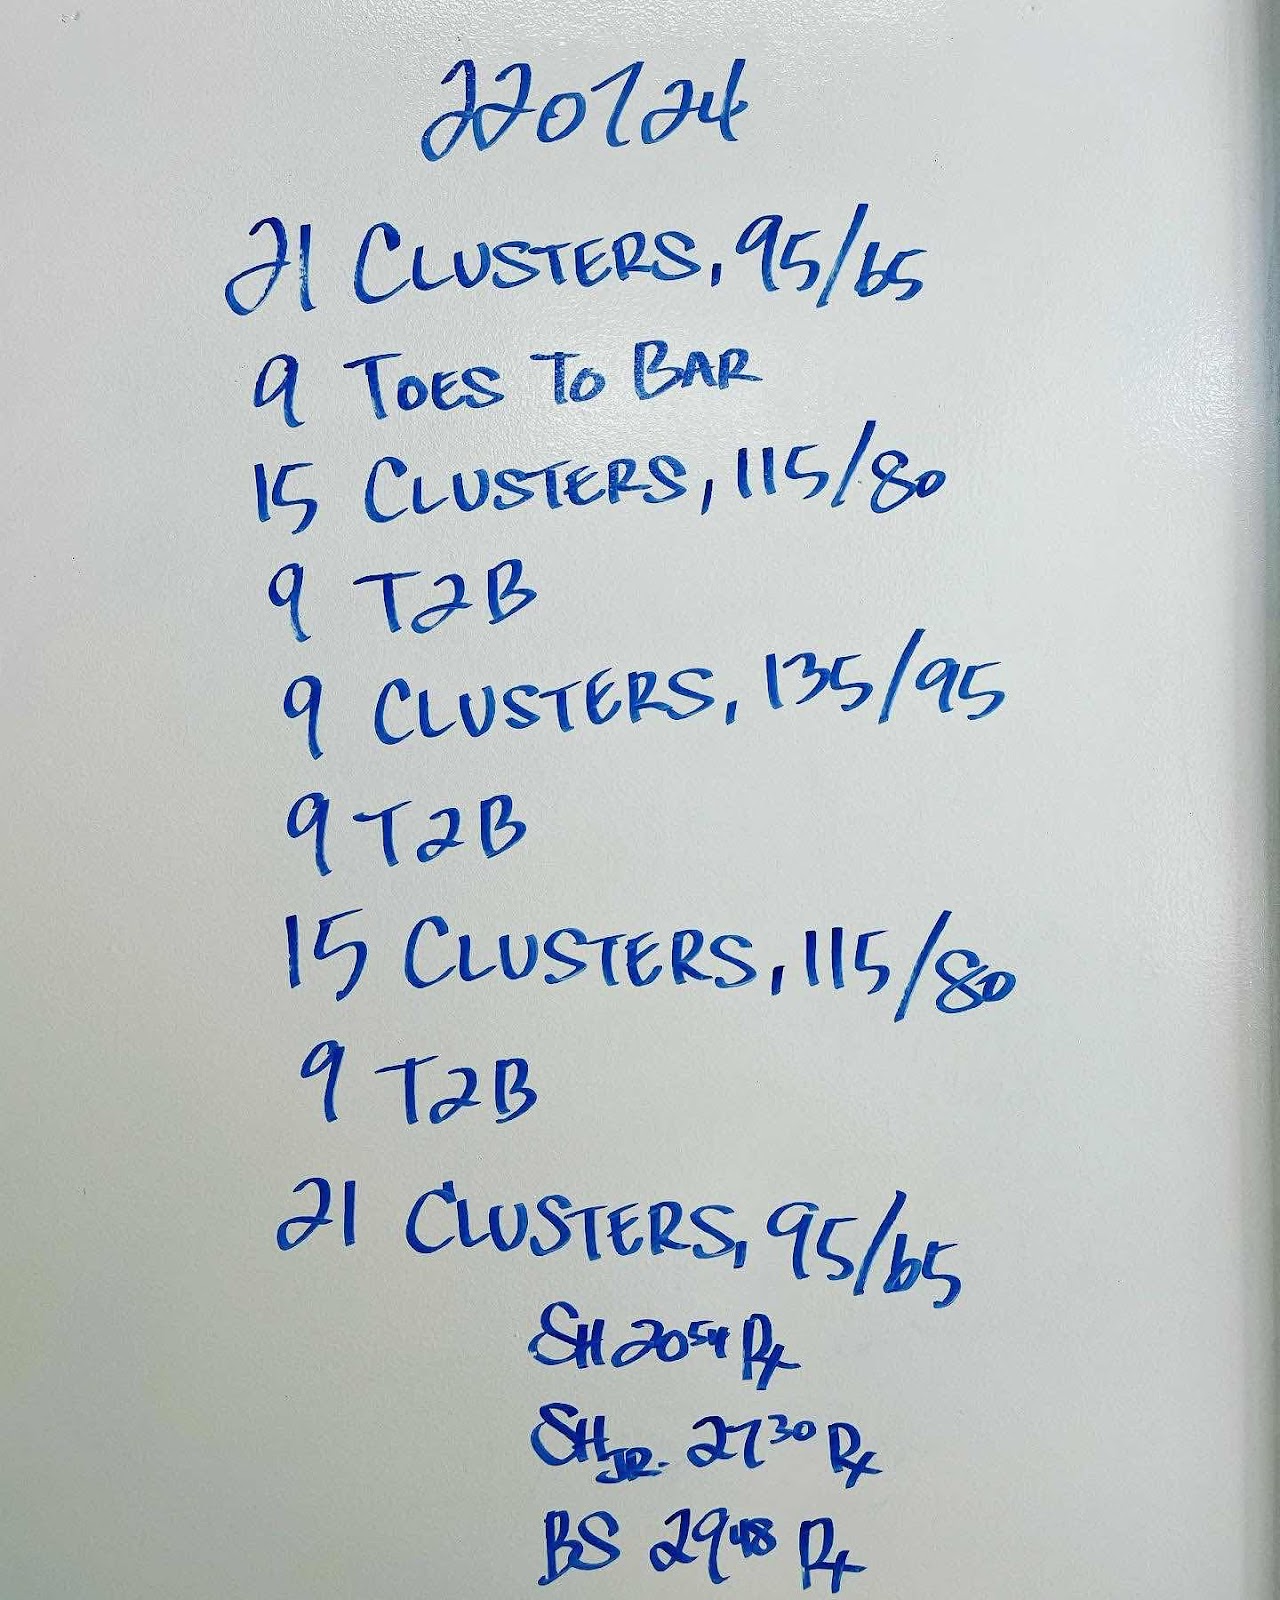 220724
21 CLUSTERS, 95/65
9 TOES TO BAR
15 CLUSTERS, 115/80
9 T2B
9 CLUSTERS, 135/95
9 T2B
15 CLUSTERS, 115/80
9 T2B
21 CLUSTERS, 95/65
SH 2054 Rx
SH JR. 2730 Rx
BS 2948 Rx